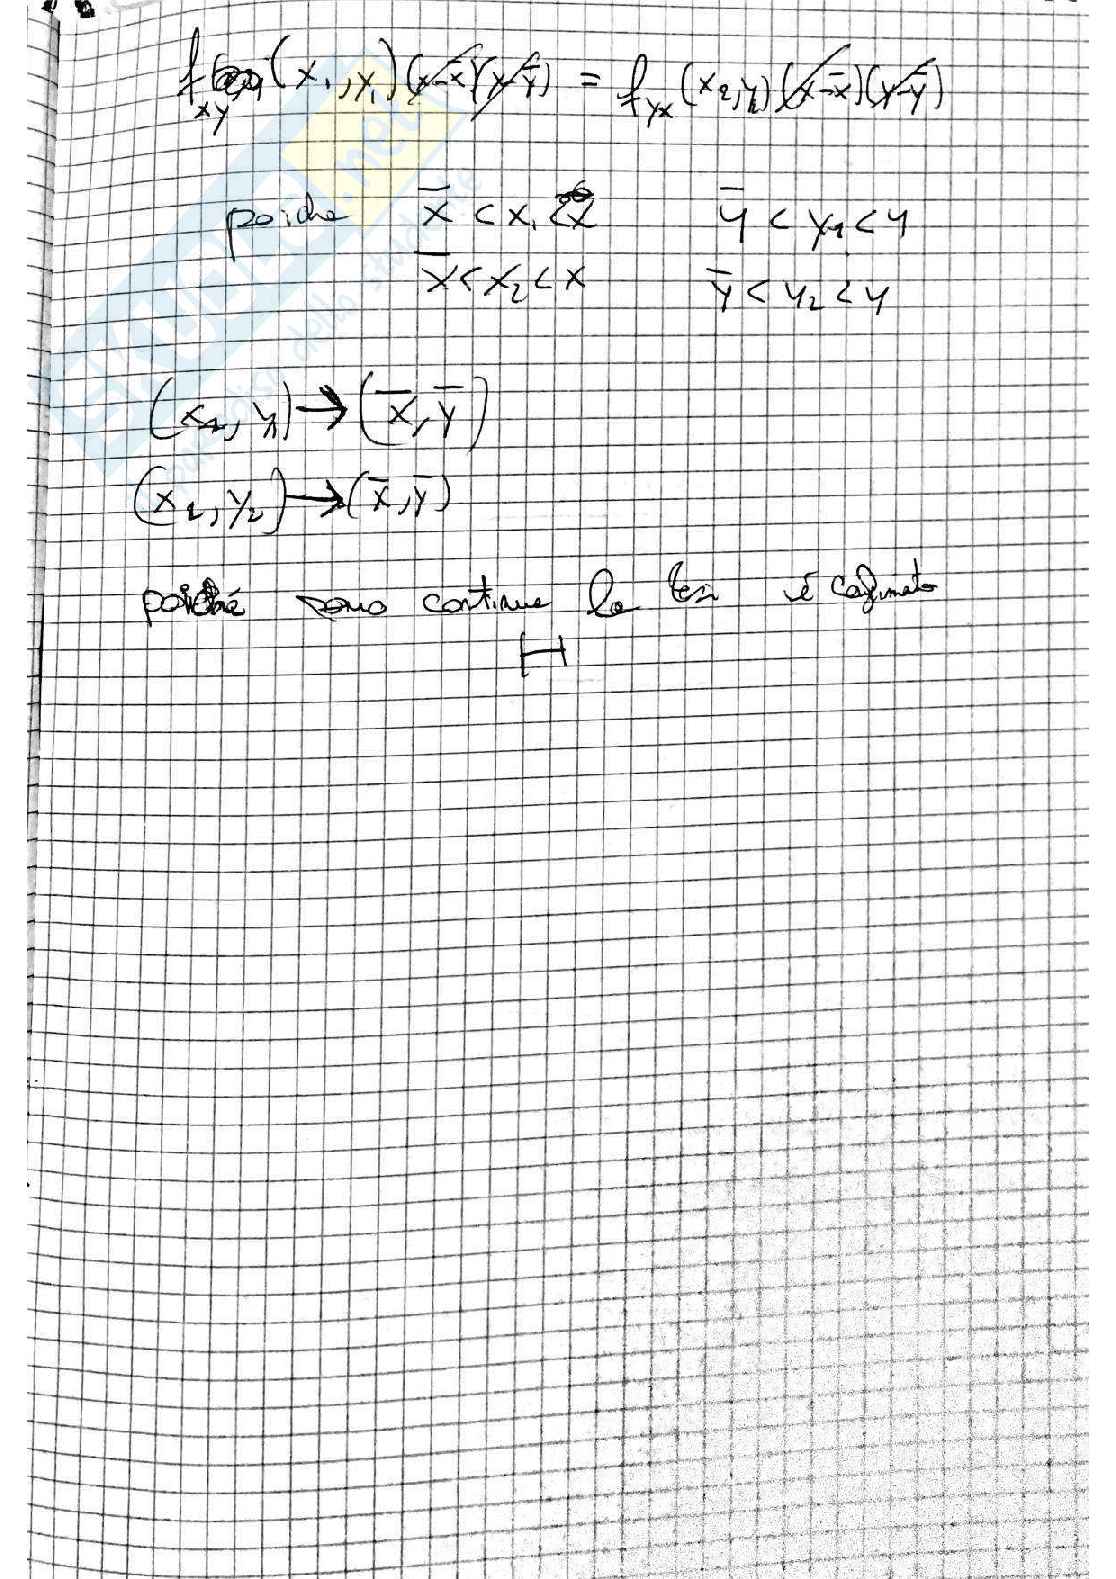 f_xy (x₁, y₁) (x-x̄)(y-ȳ) = f_yx (x₂, y₂) (x-x̄)(y-ȳ)
poiche x̄ < x₁ < x ȳ < y₁ < y
x̄ < x₂ < x ȳ < y₂ < y
(x₁, y₁) → (x̄, ȳ)
(x₂, y₂) → (x̄, ȳ)
poiché sono continue la tesi é